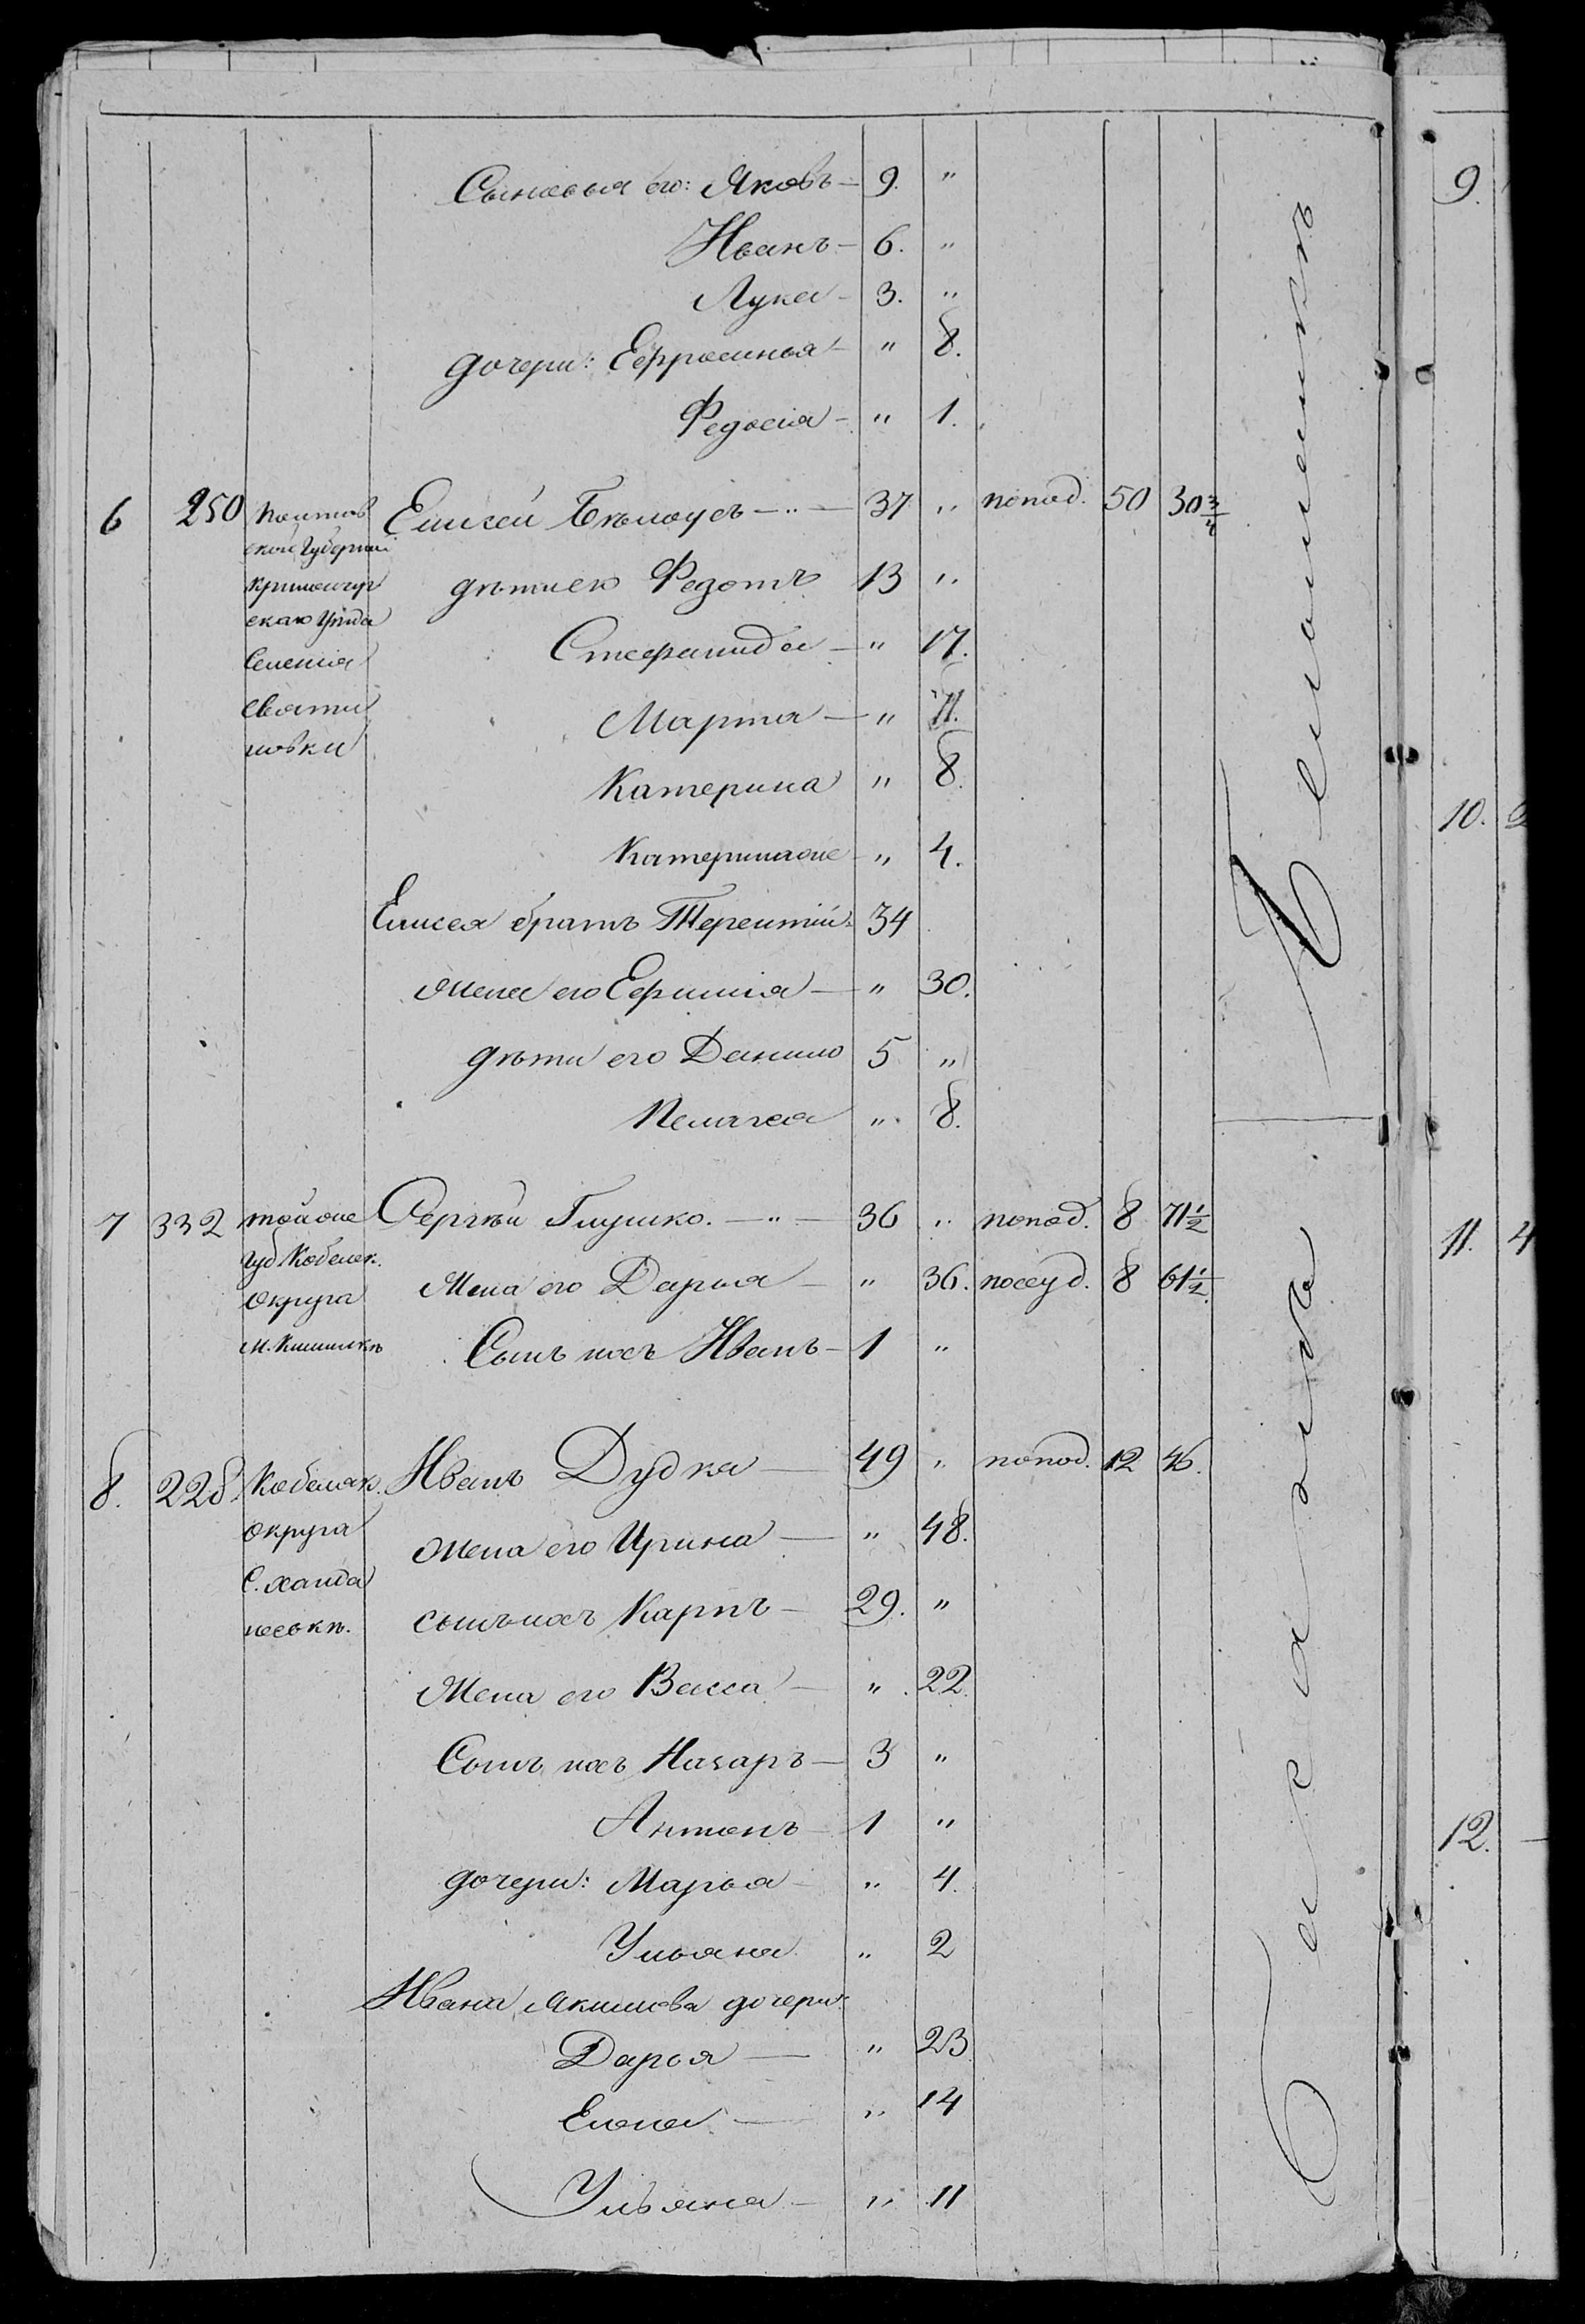 Сыновья его: Яковъ — 9. "
Иванъ — 6. "
Лука — 3. "
дочери: Ефросинья — " 8.
Федосія — " 1.
6 250 Полтав Елисей Бѣлоусъ — " — 37 " по под. 50 30 3/4
ской Губерніи
Кременчуг дѣти его Федотъ 13 "
скаго Уѣзда
Селенія Стефанида — " 17.
Святи Марта — " 11.
ловки Катерина " 8.
Катерина же " 4.
Елисея братъ Терентій 34
Жена его Ефимія — " 30.
дѣти его Данило 5 "
Пелагея " 8.
7 332 той же Сергѣй Глушко. — " — 36 " по под. 8 71 1/2
Губ Кобеляк. Жена его Дарья — " 36. по ссуд. 8 61 1/2
Округа
Сынъ ихъ Иванъ — 1 "
8. 228. Кобеляк. Иванъ Дудка — 49 " по под. 12 46.
Округа Жена его Ирина — " 48.
С. сынъ ихъ Карпъ — 29. "
Жена его Васса — " 22.
Сынъ ихъ Назаръ — 3 "
Антонъ — 1 "
дочери: Марья — " 4.
Ульяна " 2
Ивана Якимова дочери:
Дарья — " 23
Елена — " 14
Ульяна — " 11
9.
10.
11. 4
12.